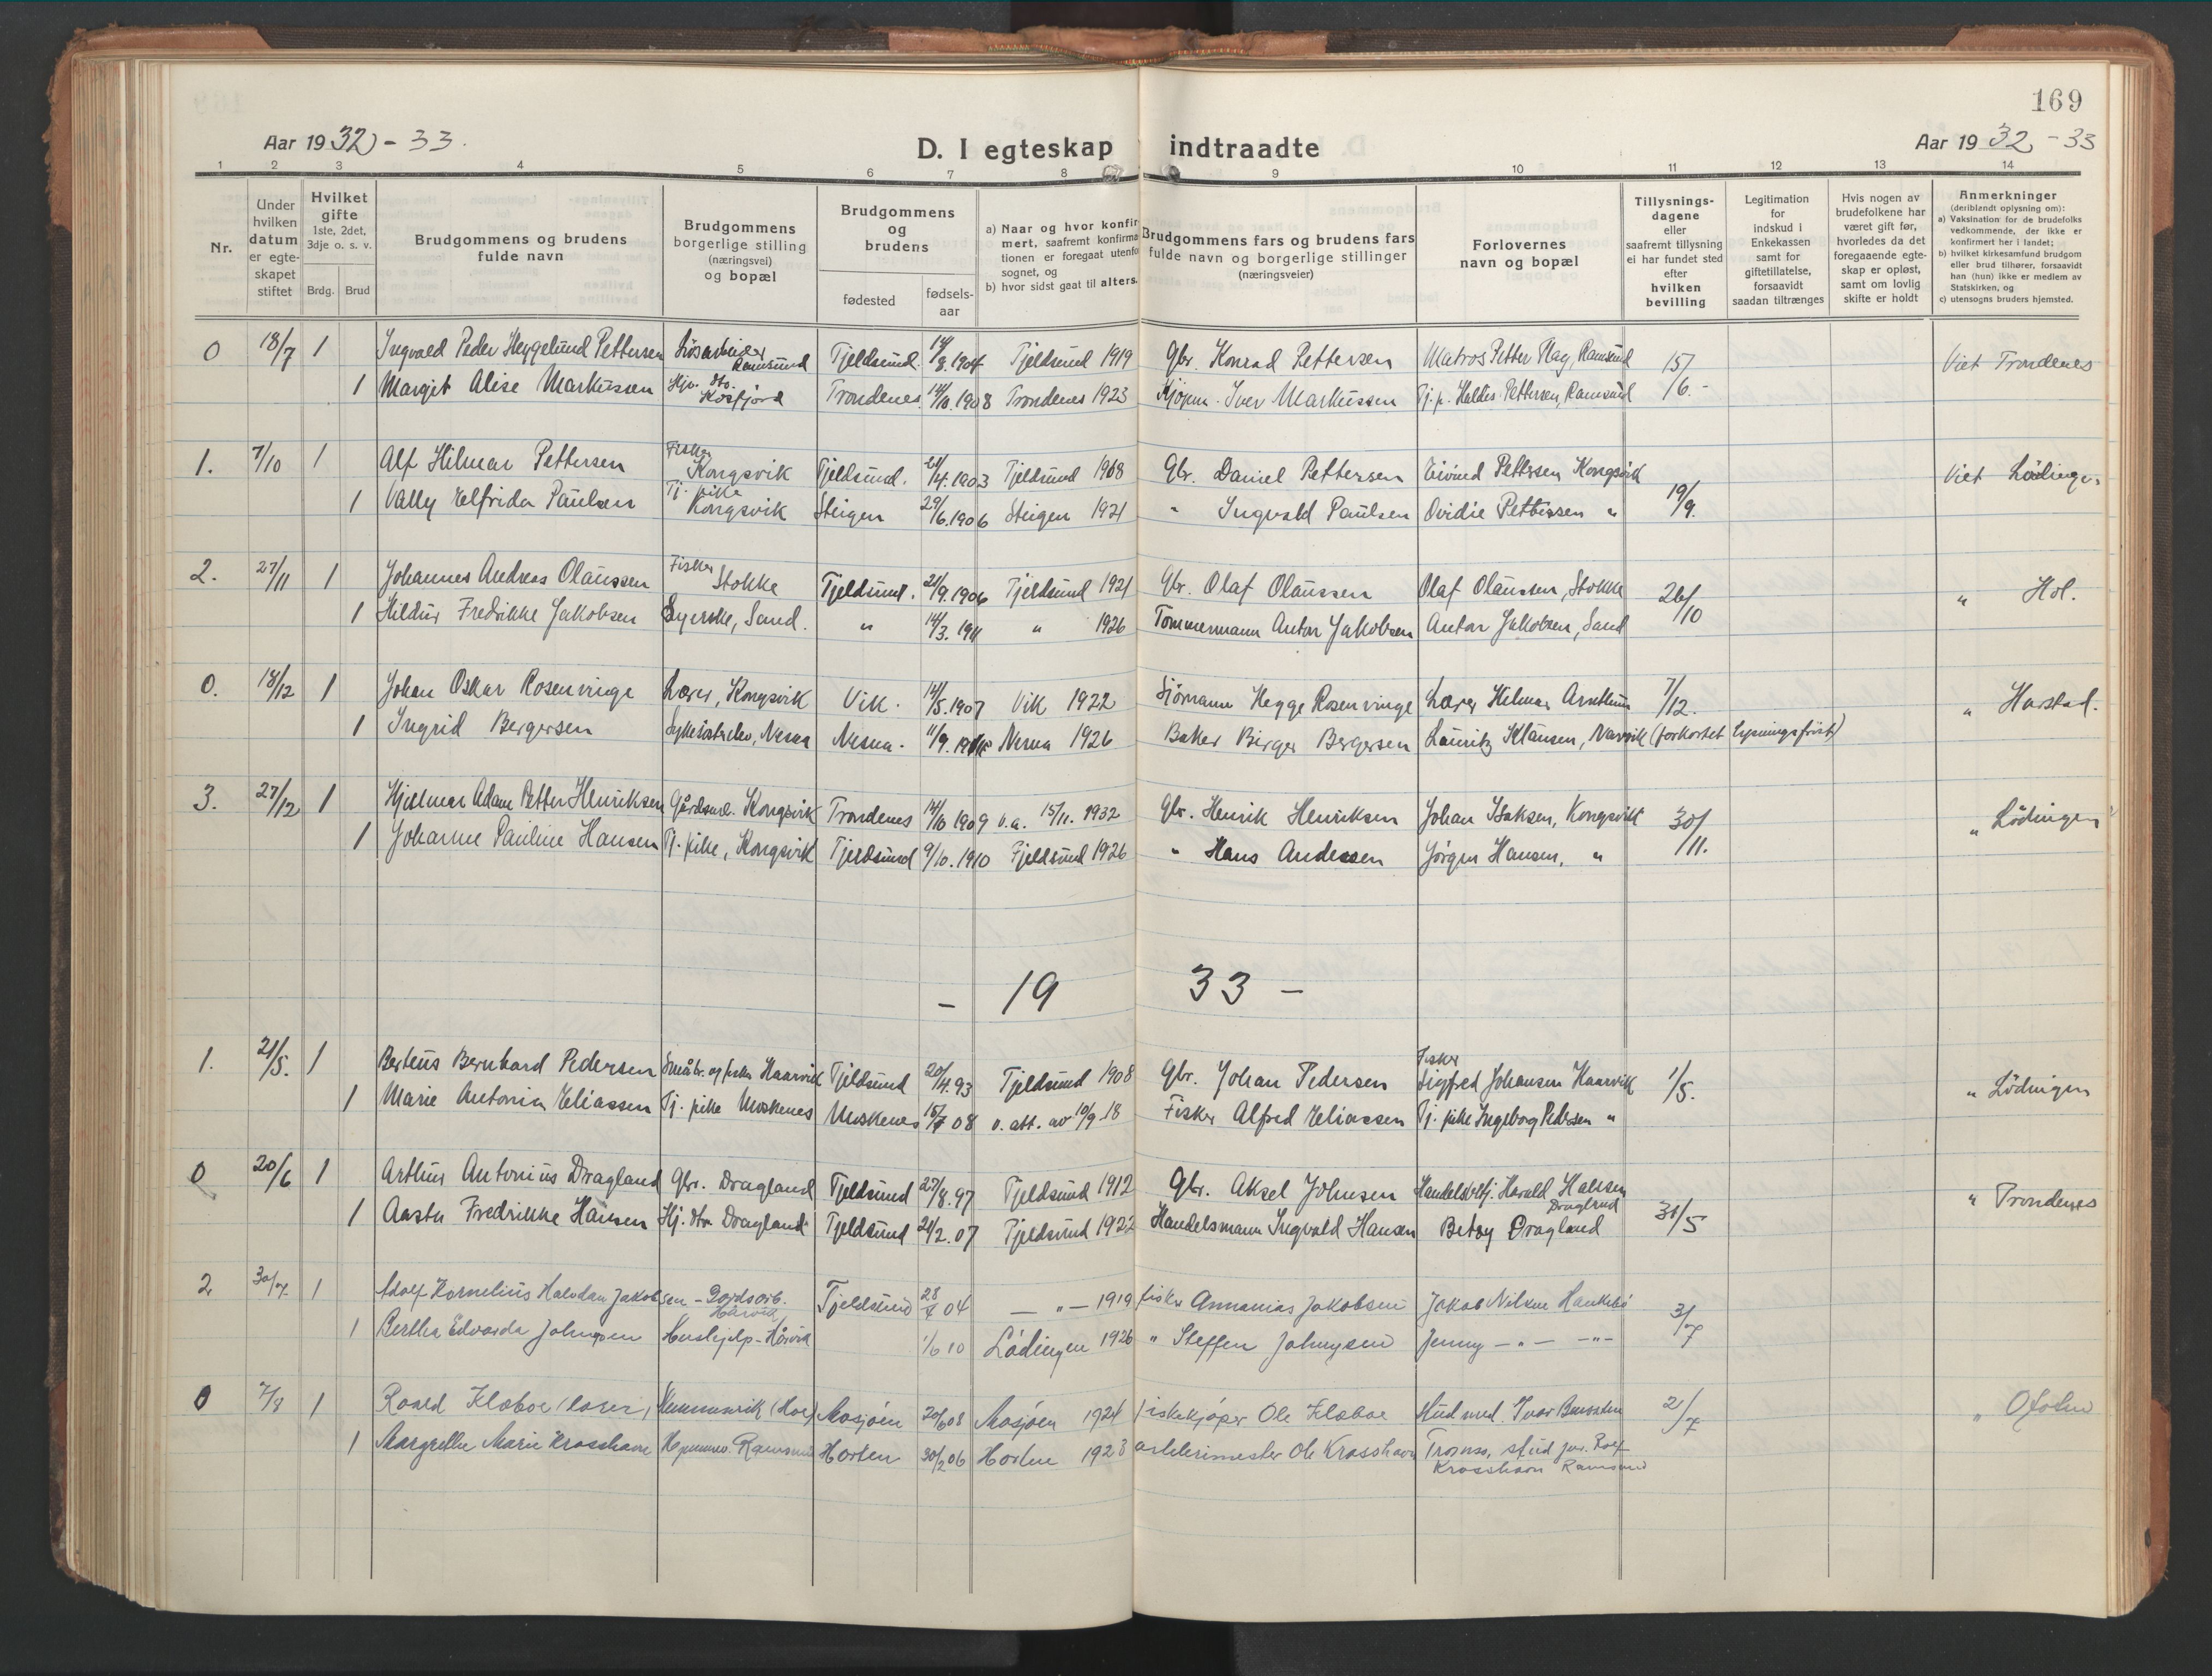 169
Aar 1932 - 33.
D. I egteskap indtraadte
Aar 1932 - 33
1 2 3 4 5 6 7 8 9 10 11 12 13 14
Nr.
Under hvilken datum er egte- skapet stiftet
Hvilket gifte 1ste, 2det, 3dje o. s. v.
Brdg. Brud
Brudgommens og brudens fulde navn
Brudgommens borgerlige stilling (næringsvei) og bopæl
Brudgommens og brudens
fødested
fødsels- aar
a) Naar og hvor konfir- mert, saafremt konfirma- tionen er foregaat utenfo sognet, og
b) hvor sidst gaat til alters.
Brudgommens fars og brudens fars fulde navn og borgerlige stillinger (næringsveier)
Forlovernes navn og bopæl
Tillysnings- dagene eller saafremt tillysning ei har fundet sted efter hvilken bevilling
Legitimation for indskud i Enkekassen samt for giftetillatelse, forsaavidt saadan tiltrænges
Hvis nogen av brudefolkene har været gift før, hvorledes da det foregaaende egte- skap er opløst, samt om lovlig skifte er holdt
Anmerkninger (deriblandt oplysning om):
a) Vaksination for de brudefolks vedkommende, der ikke er konfirmert her i landet;
b) hvilket kirkesamfund brudgom eller brud tilhører, forsaavidt han (hun) ikke er medlem av Statskirken, og
c) utensogns bruders hjemsted.
0 18/7 1 Ingvald Peder Heggelund Pettersen Løsarbeider Ramsund Tjeldsund 8.1904 Tjeldsund 1919 Gbr. Konrad Pettersen Matros Petter Hay, Ramsund 15/6.- Viet Trondenes
1 Margit Alise Markussen Hjv. dtr. Kosfjord Trondenes 14/10.1908 Trondenes 1923 Kjøpm. Iver Markussen Tj. p. Haldis Pettersen, Ramsund
1. 7/10 1 Alf Hilmar Pettersen Fisker Kongsvik Tjeldsund. 4.1903 Tjeldsund 1908 Gbr. Daniel Pettersen Eivind Pettersen Kongsvik Viet Lødingen
1 Vally Elfrida Paulsen Tj. pike Kongsvik Steigen 29/6.1906 Steigen 1921 " Ingvald Paulsen Ovidie Pettersen " 19/9.
2. 27/11 1 Johannes Andreas Olaussen Fisker Stokke Tjeldsund. 21/9.1906 Tjeldsund 1921 Gbr. Olaf Olaussen Olaf Olaussen, Stokke 26/10 " Hol.
1 Hildur Fredrikke Jakobsen Syerske, Sand. " 14/3.1911 " 1926 Tømmermann Anton Jakobsen Anton Jakobsen, Sand
0. 18/12 1 Johan Oskar Rosenvinge Lærer, Kongsvik Vik. 14/5.1907 Vik 1922 Sjømann Hegge Rosenvinge Lærer Hilmar 7/12. " Harstad.
1 Ingrid Bergersen Nesna Nesna. 11/9. Nesna 1926 Baker Birger Bergersen Lauritz Klausen, Narvik (forkortet lysningsfrist)
3. 27/12 1 Hjalmar Adam Petter Henriksen Gårdsarb. Kongsvik Trondenes 14/10 1909 v.a. 15/11. 1932 Gbr. Henrik Henriksen Johan Isaksen, Kongsvik 30/11. " Lødingen
1 Johanne Pauline Hansen Tj. pike, Kongsvik Tjeldsund 9/10.1910 Tjeldsund 1926 " Hans Andersen Jørgen Hansen, "
- 19 33 -
1. 21/5. 1 Berteus Bernhard Pedersen Småbr. og fisker Haarvik Tjeldsund 20/4.93 Tjeldsund 1908 Gbr. Johan Pedersen Fisker Sigfred Johansen Haarvik 1/5. " Lødingen
1 Marie Antonia Eliassen Tj. pike Moskenes Moskenes 08 v. att. av 10/9 18 Fisker Alfred Eliassen Tj. pike Ingeborg Pedersen "
0 20/6 1 Arthur Antonius Dragland Gbr. Dragland Tjeldsund 27/8.97 Tjeldsund 1912 Gbr. Aksel Johnsen Handelsbetj. Harald Hansen Dragland 31/5 " Trondenes
1 Aasta Fredrikke Hansen Hj. dtr. Dragland Tjeldsund 21/2.07 Tjeldsund 1922 Handelsmann Ingvald Hansen Betsy Dragland
2 30/7. 1 Adolf Kornelius Halvdan Jakobsen - Gardsarb. Hårvik Tjeldsund 28 04 - " - 1919 fisker Annanias Jakobsen Jakob Nilsen 3/7
1 Bertha Edvarda Johnysen Hushjelp - Hårvik 1/6 10 Lødingen 1926 " Steffen Johnysen Jenny - " - - " -
0 7/8 1 Roald Klæboe (lærer) Mosjøen 20/6 08 Mosjøen 1924 fiskekjøper Ole Klæboe Stud med. Ivar 2/7 " Ofoten
1 Margrethe Marie Krosshavn Ramsund Horten 30/2 06 Horten 1923 Ole Krosshavn Tromsø, stud jur. Rolf Krosshavn Ramsund